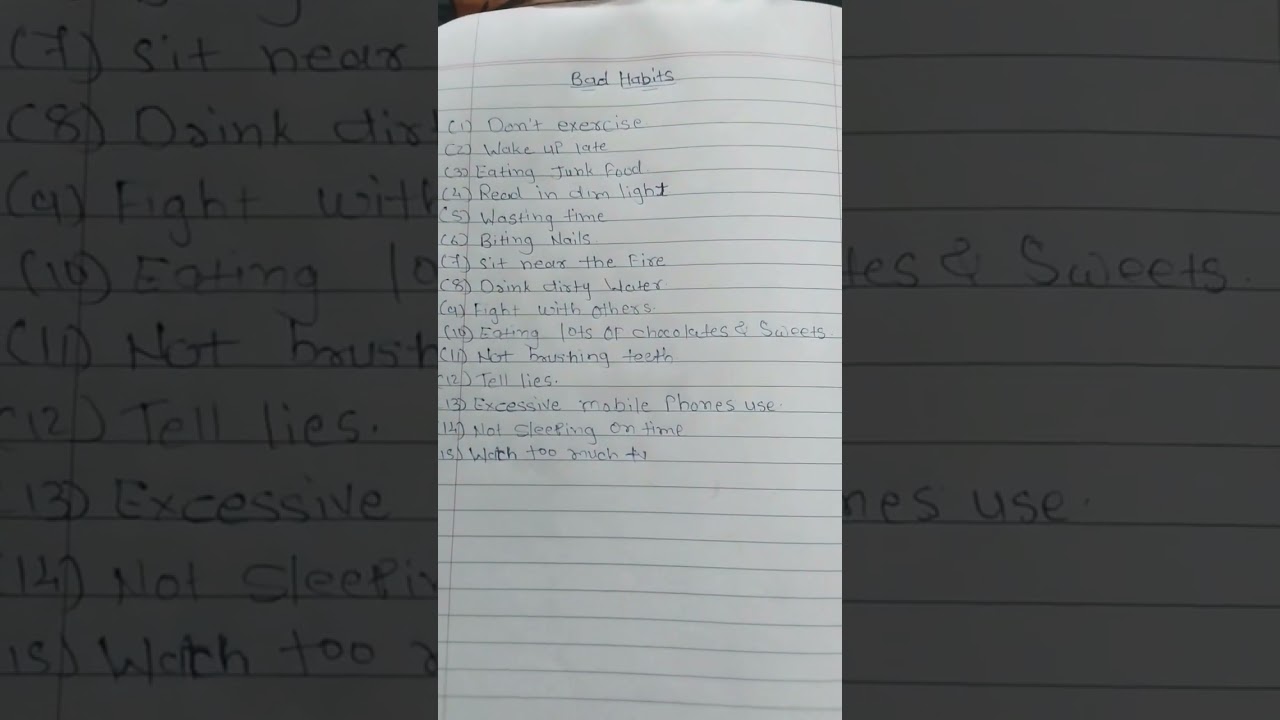 Bad Habits
(1) Don't exercise
(2) Wake up late
(3) Eating Junk Food
(4) Read in dim light
(5) Wasting time
(6) Biting Nails.
(7) Sit near the Fire
(8) Drink dirty Water
(9) Fight with others.
(10) Eating lots of chocolates & Sweets.
(11) Not brushing teeth
(12) Tell lies.
13) Excessive mobile Phones use.
14) Not Sleeping on time
15) Watch too much tv